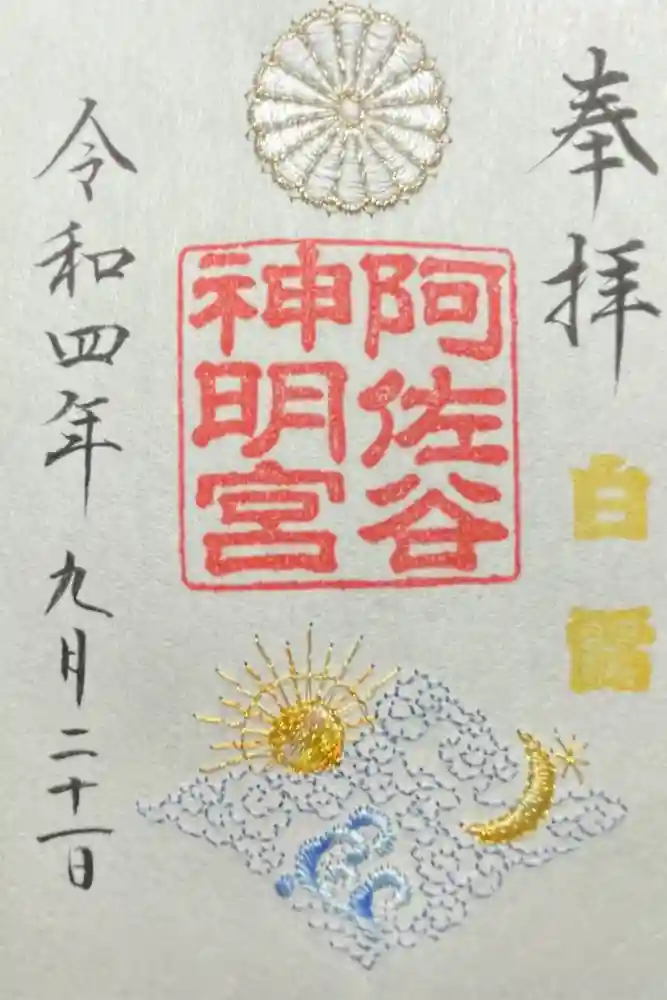 奉拝
白露
阿佐谷
神明宮
令和四年九月二十一日